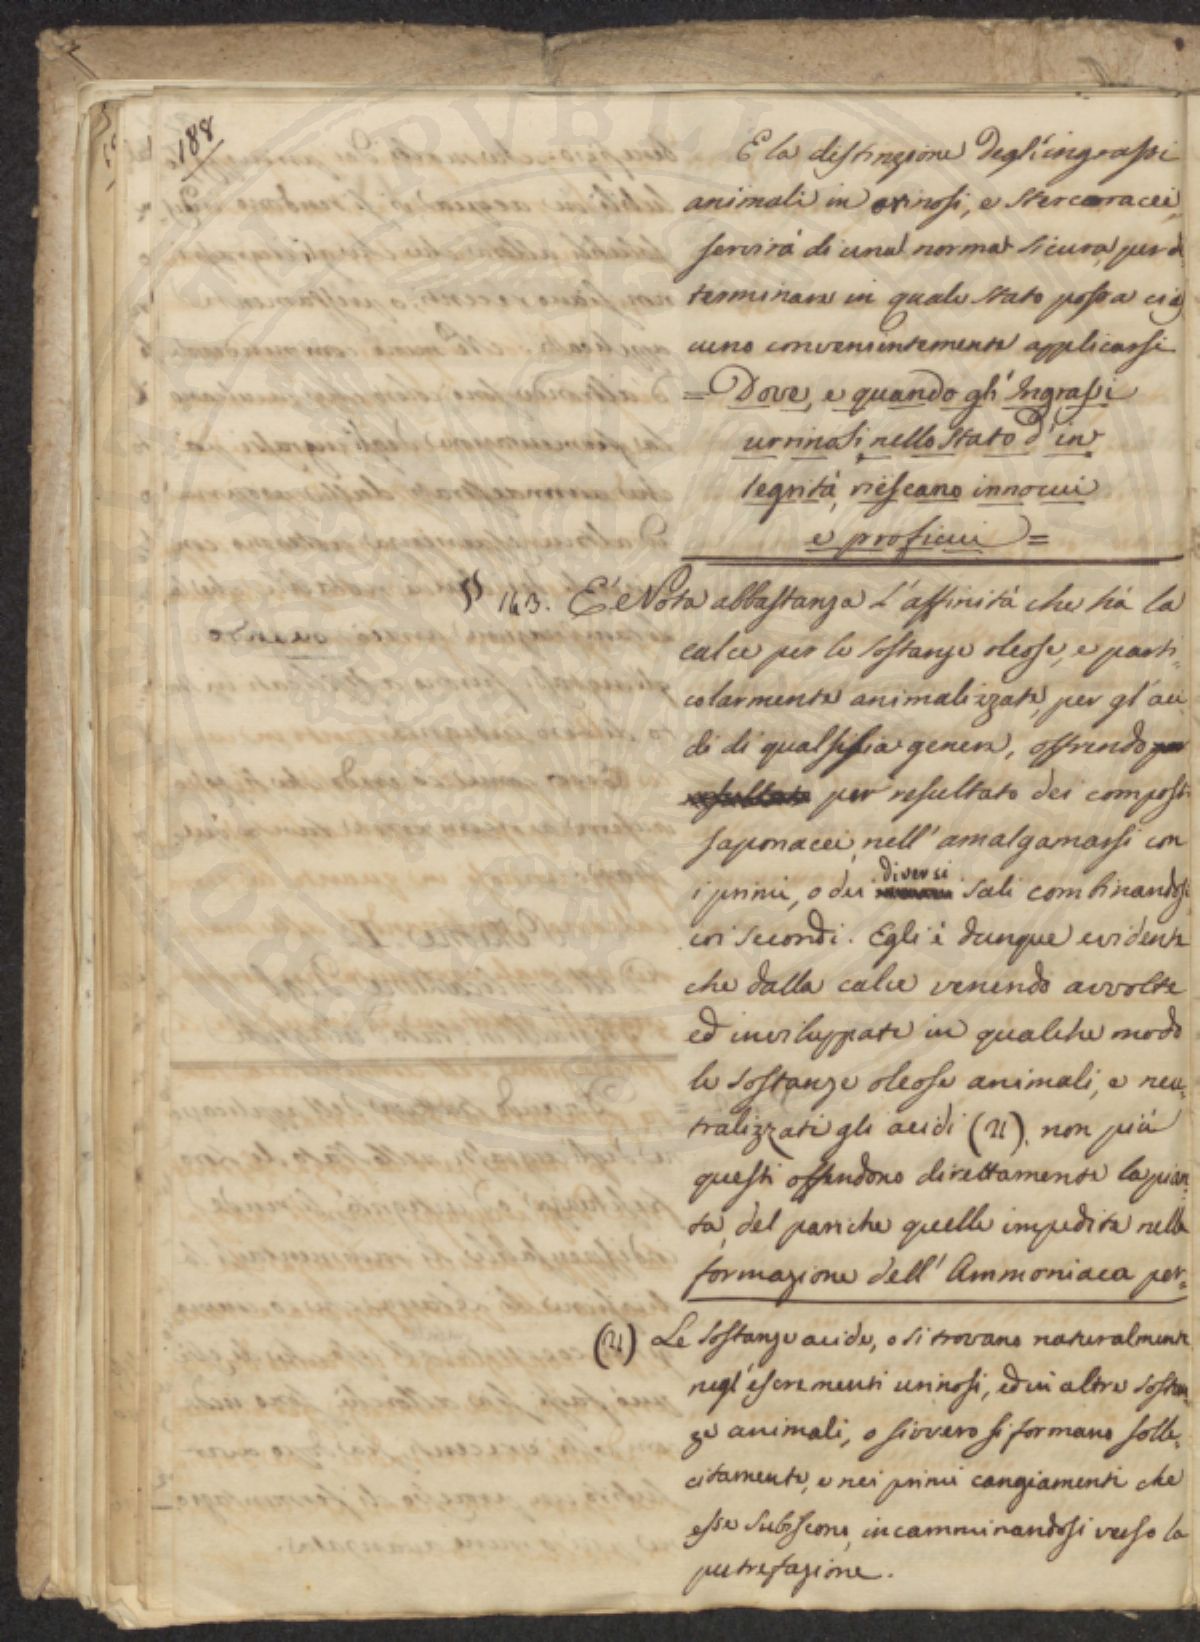 188
E la distinzione degl'ingrassi
animali in orinosi, e stercoracei,
servirà di una norma sicura, per de
terminare in quale stato possa cia
cuno convenientemente applicarsi
= Dove, e quando gl'Ingrassi
urrinosi, nello stato d'in
tegrità, riescano innocui
e proficui =
§ 143. E' Nota abbastanza l'affinità che hà la
calce per le sostanze oleose, e parti=
colarmente animalizzate, per gl'aci
di di qualsisia genere, offrendo per
resultato per resultato dei composti
saponacei, nell'amalgamarsi con
diversi
i primi, o dei sali combinandosi
coi secondi. Egli è dunque evidente
che dalla calce venendo avvolte
ed inviluppate in qualche modo
le sostanze oleose animali, e neu=
tralizzati gli acidi (u), non più
questi offendono direttamente la pian=
ta, del pariche quelle impedite nella
formazione dell'Ammoniaca per=
(u) Le sostanze acide, o si trovano naturalmente
negl'escrementi urinosi, ed in altre sostan=
ze animali, o sivvero si formano solle=
citamente, e nei primi cangiamenti che
esse subiscono, incamminandosi verso la
putrefazione.